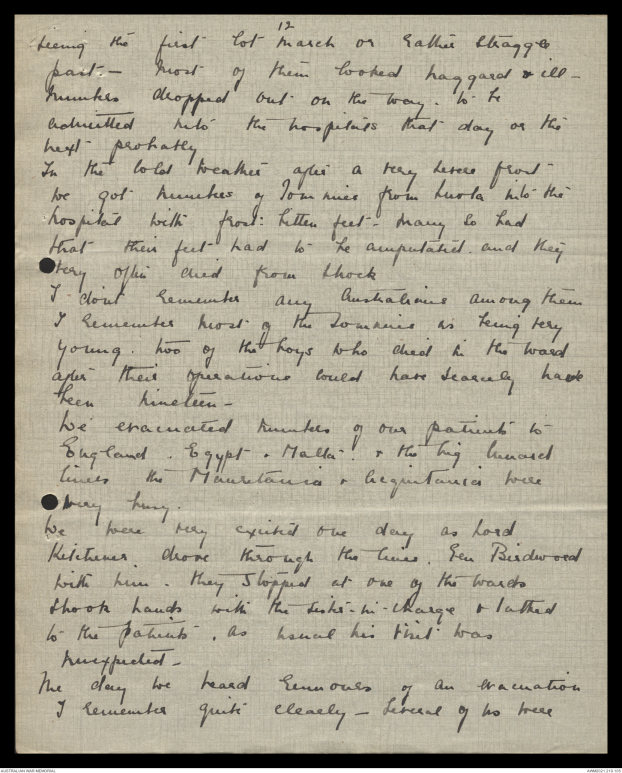 12
seeing the first lot march or rather straggle
past – most of them looked haggard & ill –
numbers dropped out on the way. to be
admitted into the hospitals that day or the
next probably
In the cold weather after a very severe frost
we got numbers of Tommies from Suvla into the
hospital with frost-bitten feet – many so bad
that their feet had to be amputated. and they
very often died from shock
I dont remember any Australians among them
I remember most of the Tommies as being very
young. two of the boys who died in the ward
after their operations could have scarcely have
been nineteen –
We evacuated numbers of our patients to
England. Egypt & Malta. & the big Cunard
liners the Mauretania & Acquitania were
very busy.
We were very excited one day as Lord
Kitchener drove through the lines. Gen Birdwood
with him – they stopped at one of the wards
shook hands with the sister-in-charge & talked
to the patients. as usual his visit was
unexpected –
The day we heard rumours of an evacuation
I remember quite clearly – several of us were
AUSTRALIAN WAR MEMORIAL